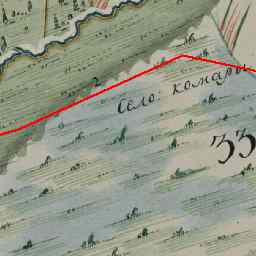 2
Село: комары
33